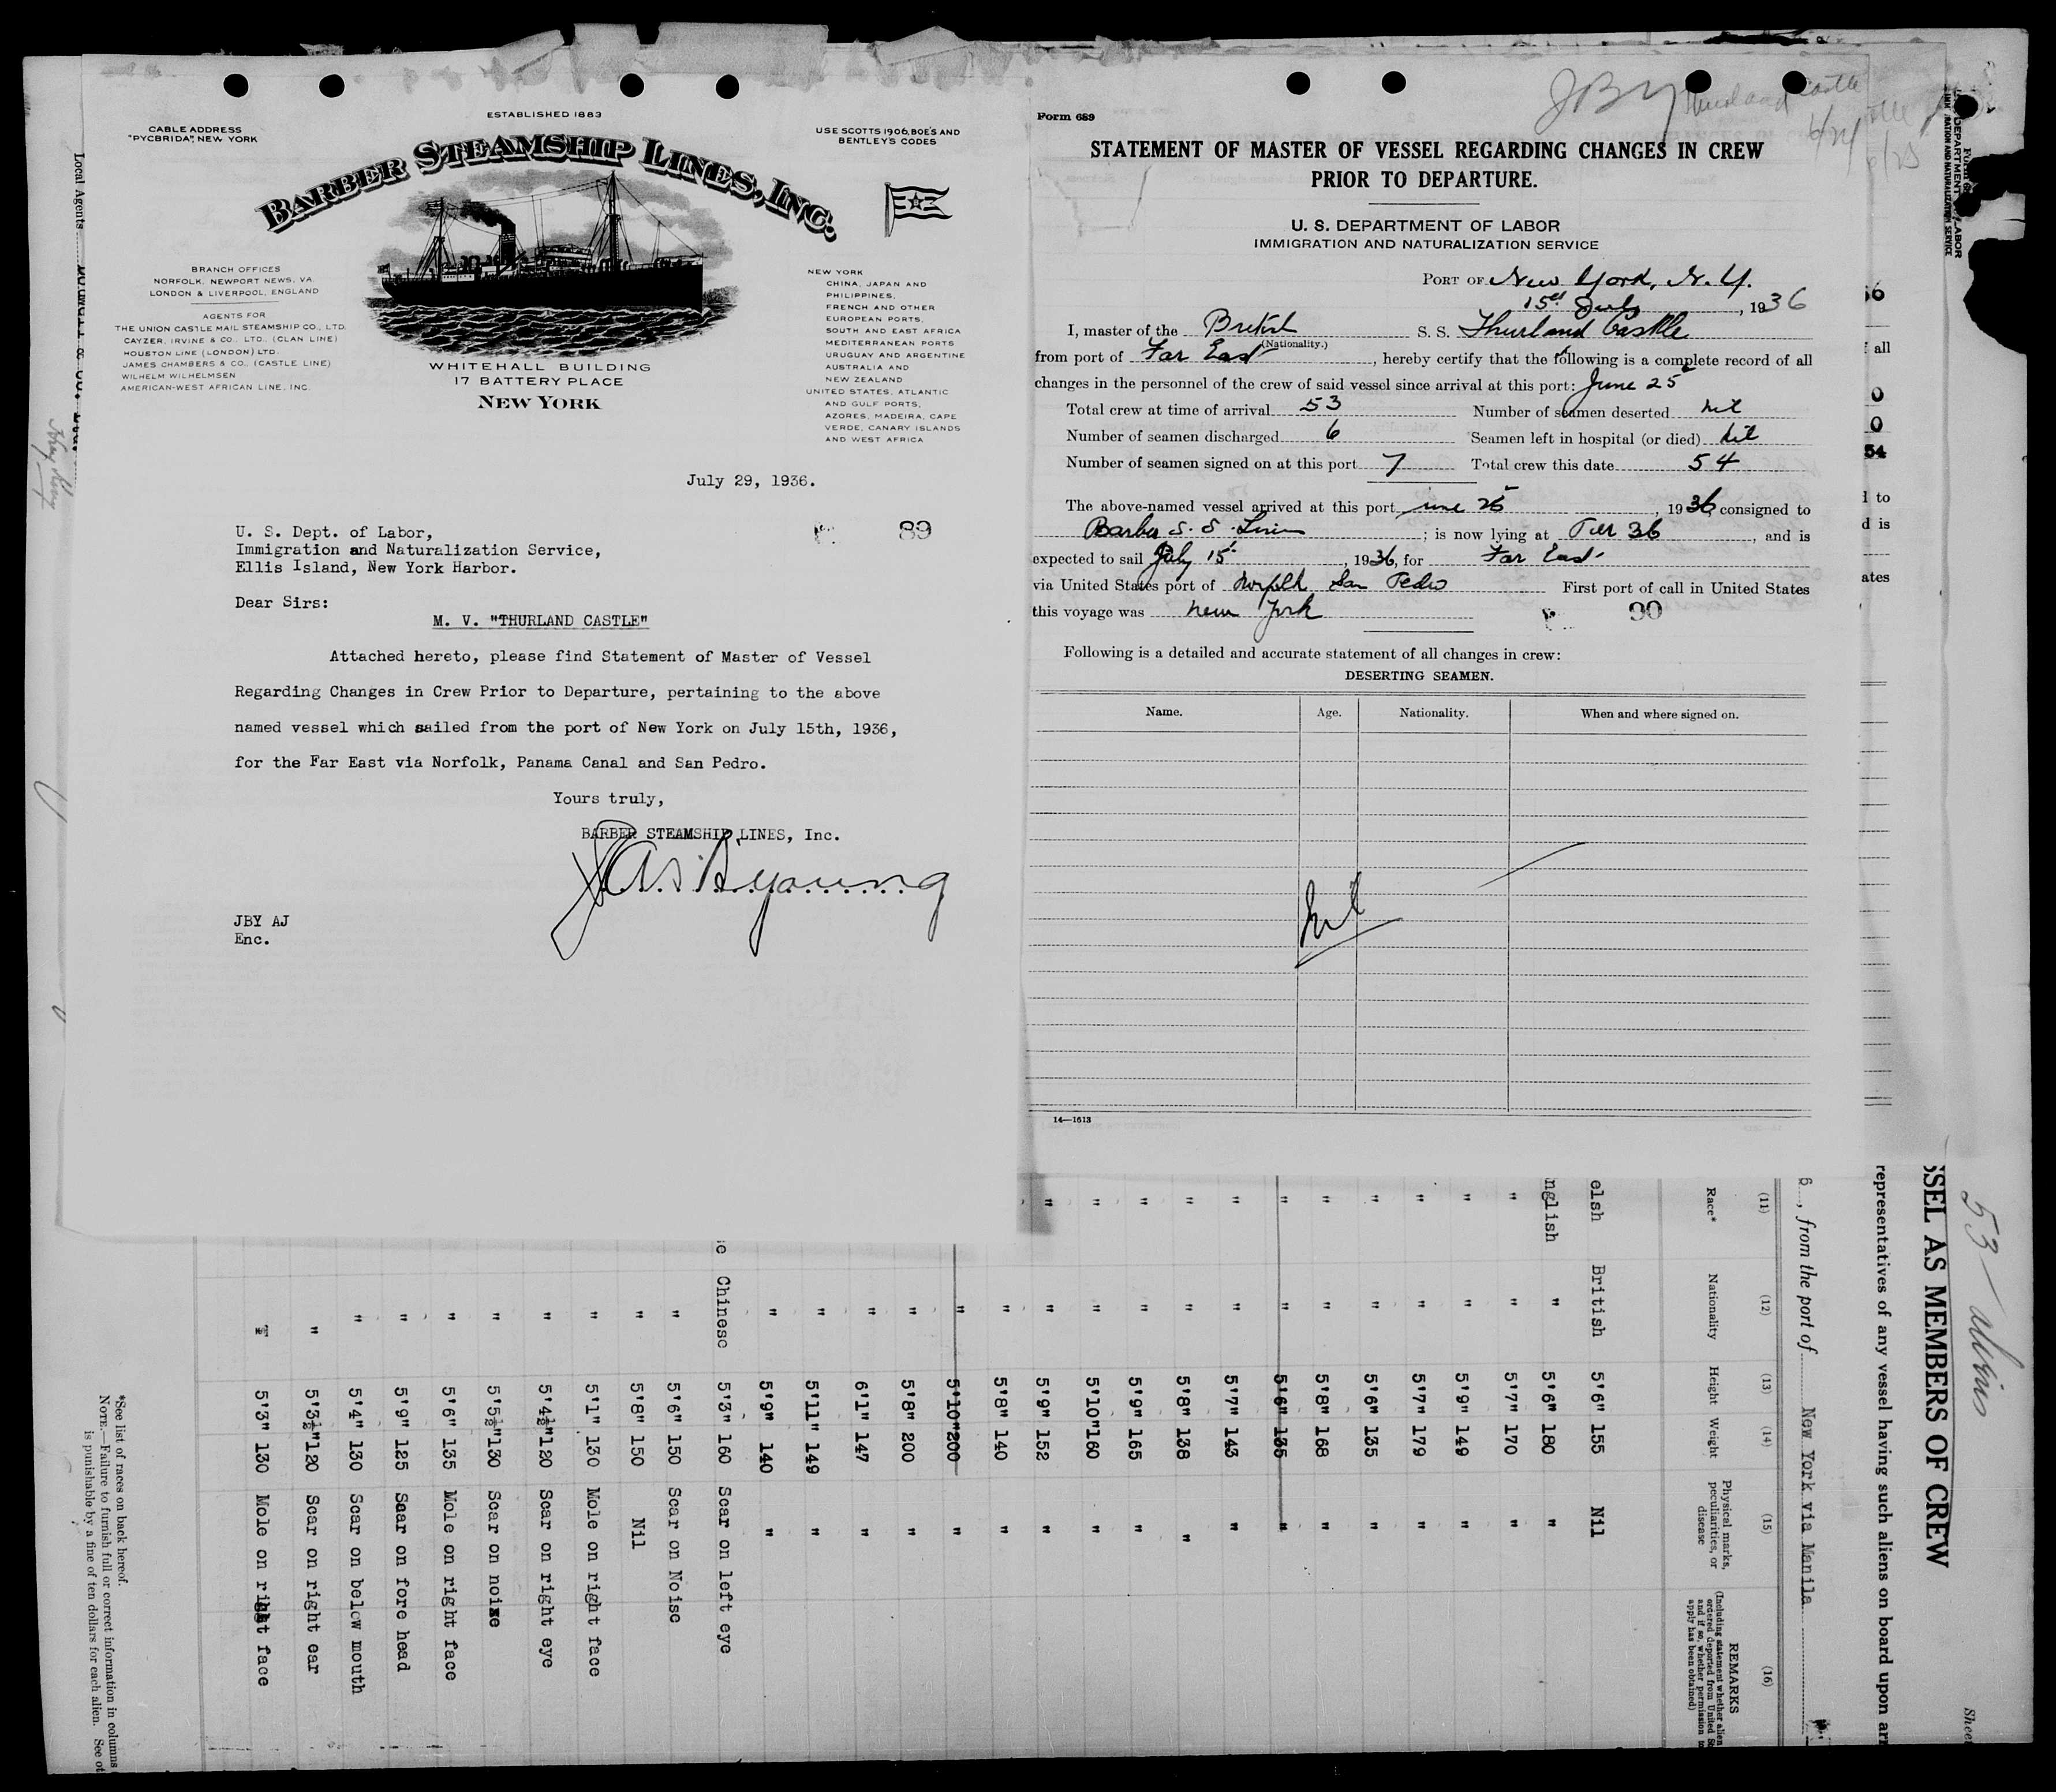 ESTABLISHED 1883
CABLE ADDRESS
"PYCBRIDA", NEW YORK
USE SCOTTS 1906, BOE'S AND
BENTLEY'S CODES
BARBER STEAMSHIP LINES, INC.
BRANCH OFFICES
NORFOLK, NEWPORT NEWS, VA.
LONDON & LIVERPOOL, ENGLAND
AGENTS FOR
THE UNION CASTLE MAIL STEAMSHIP CO., LTD.
CAYZER, IRVINE & CO. LTD. (CLAN LINE)
HOUSTON LINE (LONDON) LTD.
JAMES CHAMBERS & CO., (CASTLE LINE)
WILHELM WILHELMSEN
AMERICAN-WEST AFRICAN LINE, INC.
WHITEHALL BUILDING
17 BATTERY PLACE
NEW YORK
NEW YORK
CHINA, JAPAN AND
PHILIPPINES,
FRENCH AND OTHER
EUROPEAN PORTS,
SOUTH AND EAST AFRICA
MEDITERRANEAN PORTS
URUGUAY AND ARGENTINE
AUSTRALIA AND
NEW ZEALAND
UNITED STATES, ATLANTIC
AND GULF PORTS,
AZORES, MADEIRA, CAPE
VERDE, CANARY ISLANDS
AND WEST AFRICA
July 29, 1936.
89
U. S. Dept. of Labor,
Immigration and Naturalization Service,
Ellis Island, New York Harbor.
Dear Sirs:
M. V. "THURLAND CASTLE"
Attached hereto, please find Statement of Master of Vessel
Regarding Changes in Crew Prior to Departure, pertaining to the above
named vessel which sailed from the port of New York on July 15th, 1936,
for the Far East via Norfolk, Panama Canal and San Pedro.
Yours truly,
BARBER STEAMSHIP LINES, Inc.
Jas. B. Young
JBY AJ
Enc.
JBY Thurland Castle
6/24
6/25
Form 689
STATEMENT OF MASTER OF VESSEL REGARDING CHANGES IN CREW
PRIOR TO DEPARTURE.
U. S. DEPARTMENT OF LABOR
IMMIGRATION AND NATURALIZATION SERVICE
PORT OF New York, N. Y.
15th July, 1936
I, master of the British S. S. Thurland Castle
(Nationality.)
from port of Far East, hereby certify that the following is a complete record of all
changes in the personnel of the crew of said vessel since arrival at this port: June 25
Total crew at time of arrival 53 Number of seamen deserted nil
Number of seamen discharged 6 Seamen left in hospital (or died) nil
Number of seamen signed on at this port 7 Total crew this date 54
The above-named vessel arrived at this port June 25, 1936, consigned to
Barber S. S. Lines; is now lying at Pier 36, and is
expected to sail July 15, 1936, for Far East
via United States port of Norfolk San Pedro First port of call in United States
this voyage was New York
90
Following is a detailed and accurate statement of all changes in crew:
DESERTING SEAMEN.
Name. Age. Nationality. When and where signed on.
Nil
14—1613
Local Agents
53 - aliens
SSEL AS MEMBERS OF CREW
Shee
representatives of any vessel having such aliens on board upon arr
6, from the port of New York via Manila
(11) (12) (13) (14) (15) (16)
Race* Nationality Height Weight Physical marks, peculiarities, or disease REMARKS
elsh British 5'6" 155 Nil
nglish " 5'6" 180 "
" " 5'7" 170 "
" " 5'9" 149 "
" " 5'7" 179 "
" " 5'6" 135 "
" " 5'8" 168 "
" " 5'6" 135 "
" " 5'7" 143 "
" " 5'8" 138 "
" " 5'9" 165 "
" " 5'10" 160 "
" " 5'9" 152 "
" 5'8" 140 "
" 5'10" 200 "
" 5'8" 200 "
" 6'1" 147 "
" 5'11" 149 "
" 5'9" 140 "
e Chinese 5'3" 160 Scar on left eye
" 5'6" 150 Scar on Noise
" 5'8" 150 Nil
" 5'1" 130 Mole on right face
" 5'4½" 120 Scar on right eye
" 5'5½" 130 Scar on noise
" 5'6" 135 Mole on right face
" 5'9" 125 Saar on fore head
" 5'4" 130 Scar on below mouth
" 5'3½" 120 Scar on right ear
5'3" 130 Mole on right face
*See list of races on back hereof.
NOTE.—Failure to furnish full or correct information in columns
is punishable by a fine of ten dollars for each alien. See ot